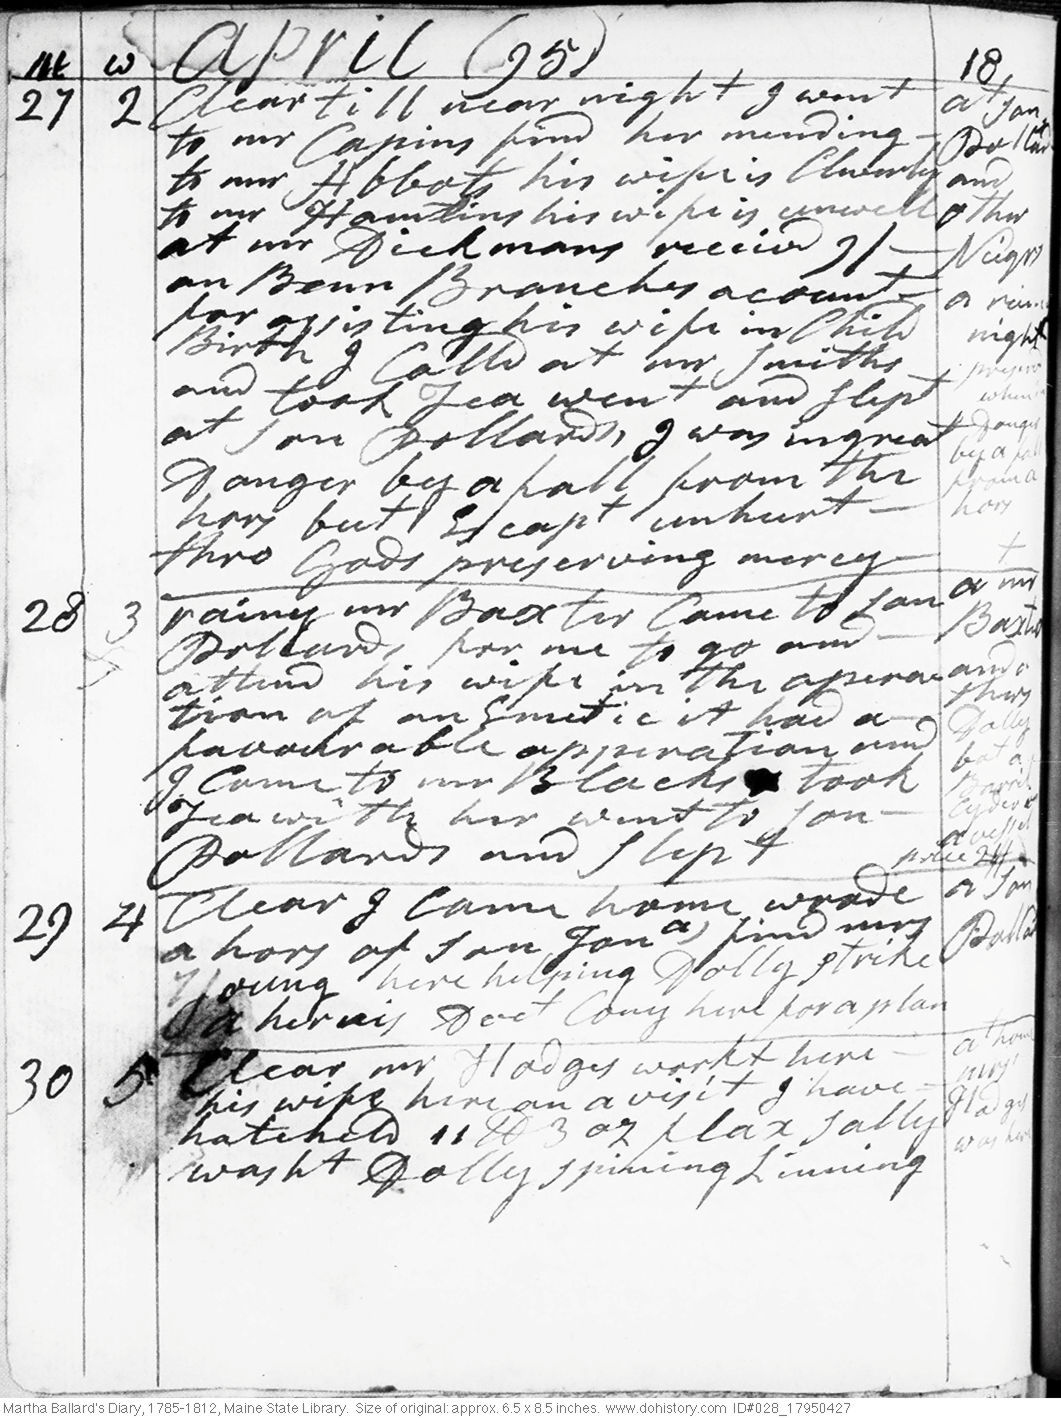 mt w April (95) 18
27 2 Clear till near night I went
to mr Capins find her mending
to mr Abbots his wife is Cleverly
to mr Hamlins his wife is unwell
at mr Dickmans receivd 9/
on Benn Branches acount
for assisting his wife in Child
Birth I Calld at mr Smiths
and took Tea went and slept
at son Pollards, I was in great
Danger by a fall from the
hors but Escapt unhurt
thro Gods preserving mercy
at son
Pollard
and
other
Neigrs
a
night
when
Danger
by a fall
from a
hors
+
28 3 rainy mr Baxter Came to son
Pollards for me to go and
attend his wife in the opera
tion of an Emetic it had a
favourable opperation and
I Came to mr Blacks took
Tea with her went to son
Pollards and slept
a mr
Baxter
and o
thers
Dolly
bot a
Barril
Cyder
a vessel
price 24/
29 4 Clear I Came home wrode
a hors of son Jonas, find mrs
Young here helping Dolly strike
a hernis Doct Cony here for a plan
a son
Pollard
30 5 Clear mr Hodges workt here
his wife here on a visit I have
hatcheld 11 lb 3 oz flax Sally
washt Dolly spining Linning
at home
mrs
Hodges
was here
Martha Ballard's Diary, 1785-1812, Maine State Library. Size of original: approx. 6.5 x 8.5 inches. www.dohistory.com ID#028_17950427